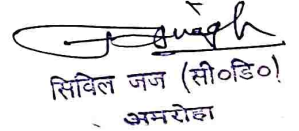 सिविल जज (सी०डि०)
अमरोहा